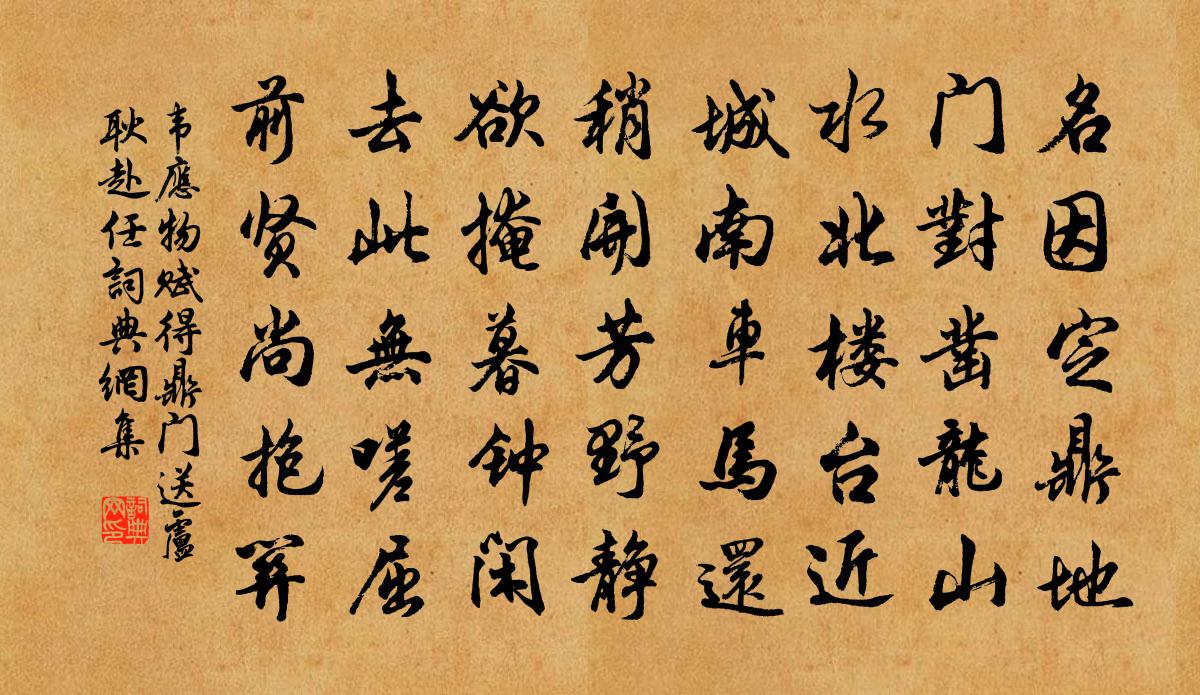 名因定鼎地
门對凿龍山
水北楼台近
城南車馬還
稍開芳野静
欲掩暮钟闲
去此無嗟屈
前贤尚抱關
韦應物赋得鼎门送盧
耿赴任詞典網集
詞典
网印